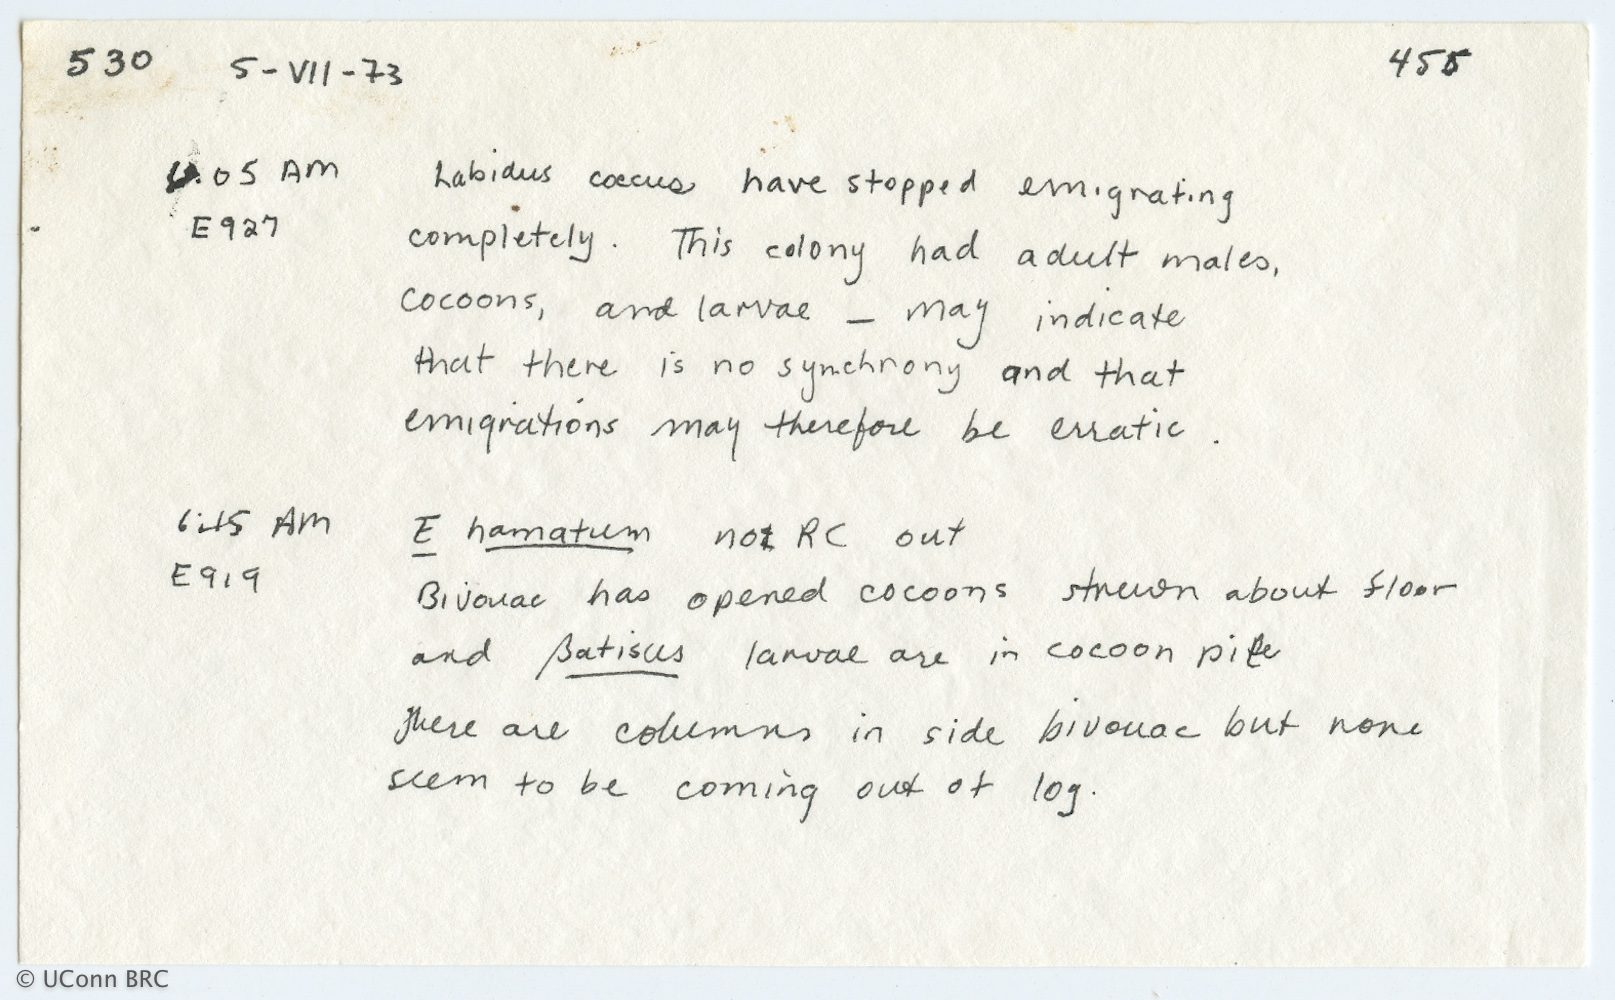 530 5-VII-73 455
6:05 AM Labidus coecus have stopped emigrating
E927 completely. This colony had adult males,
cocoons, and larvae – may indicate
that there is no synchrony and that
emigrations may therefore be erratic.
6:15 AM E hamatum not RC out
E919 Bivouac has opened cocoons strewn about floor
and Batisus larvae are in cocoon pile
There are columns in side bivouac but none
seem to be coming out of log.
© UConn BRC